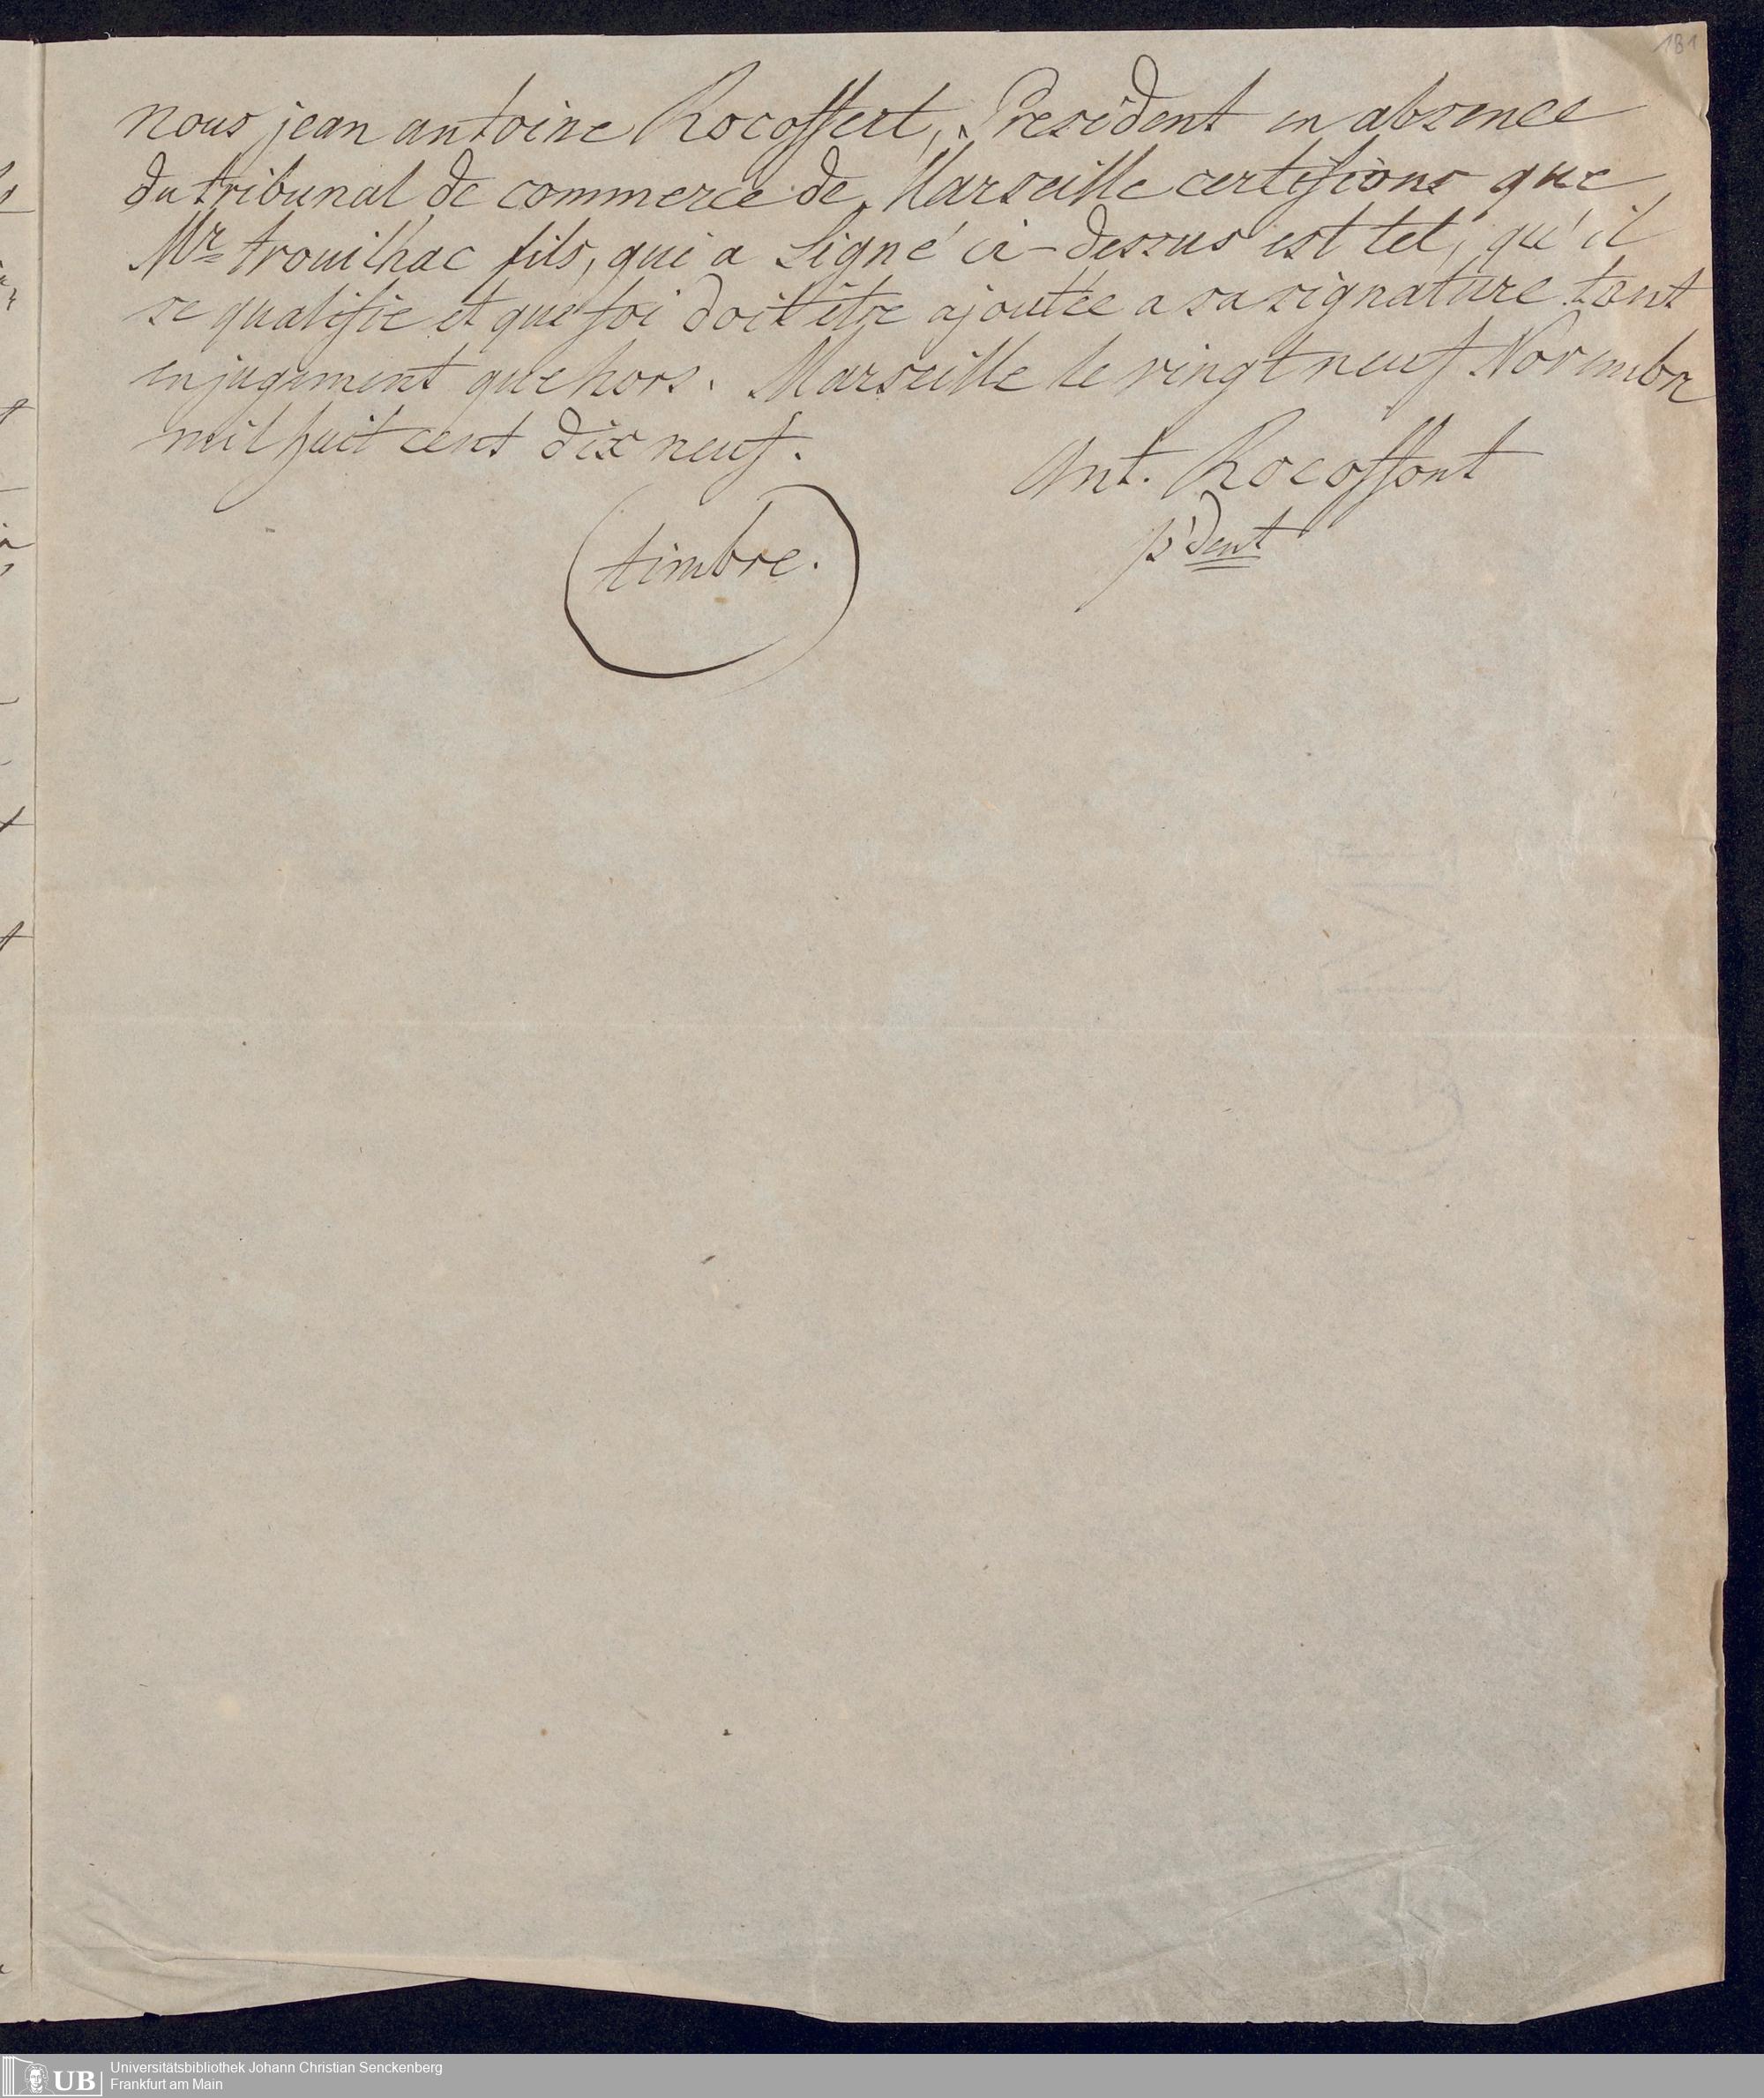 181
nous jean antoine Rocoffert, President en absence
du tribunal de commerce de Marseille certifions que
Mr trouilhac fils, qui a Signé ci-dessus est tel, qu'il
se qualifie et que foi doit être ajoutée a sa signature tant
en jugement que hors. Marseille le vingt neuf Novembre
mil huit cent dix neuf.
Ant. Rocoffont
p'dent
timbre.
UB
Universitätsbibliothek Johann Christian Senckenberg
Frankfurt am Main